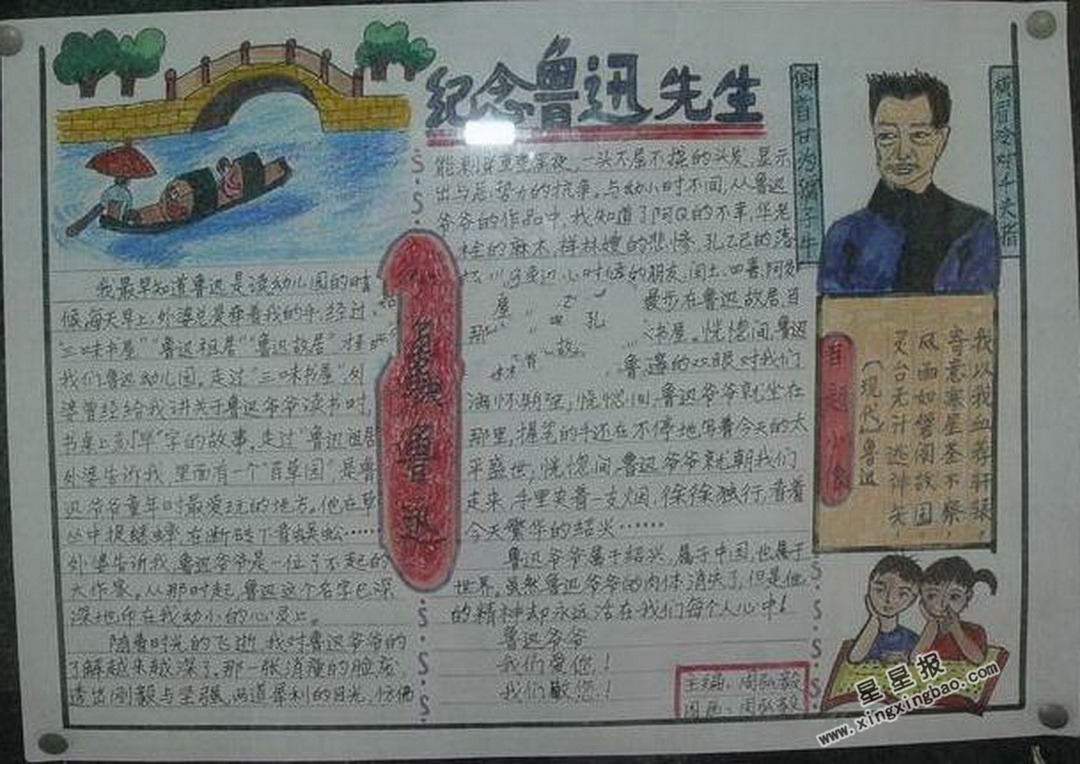 纪念鲁迅先生
我最早知道鲁迅是读幼儿园的时
候,每天早上,外婆总是牵着我的手,经过
三味书屋""鲁迅祖居""鲁迅故居"
我们鲁迅幼儿园。走过"三味书屋",外
婆曾经给我讲关于鲁迅爷爷读书时,
书桌上刻"早"字的故事。走过"鲁迅祖居
外婆告诉我,里面有一个"百草园",是鲁
迅爷爷童年时最爱玩的地方。他在草
丛中捉蟋蟀,在断砖下找蜈蚣……
外婆告诉我,鲁迅爷爷是一位了不起的
大作家。从那时起,鲁迅这个名字已深
深地印在我幼小的心灵上。
随着时光的飞逝,我对鲁迅爷爷的
了解越来越深了。那一张消瘦的脸庞,
透出刚毅与坚强,两道犀利的目光,仿佛
鲁迅
能刺穿重重黑夜,一头不屈不挠的头发,显示
出与恶势力的抗争。与幼小时不同,从鲁迅
爷爷的作品中,我知道了阿Q的不幸,华老
栓的麻木,祥林嫂的悲惨,孔乙己的落
鲁迅小时候的朋友,闰土、
漫步在鲁迅故居
书屋。恍惚间,鲁迅
的双眼对我们
满怀期望,恍惚间,鲁迅爷爷就坐在
那里,握笔的手还在不停地写着今天的太
平盛世,恍惚间,鲁迅爷爷就朝我们
走来,手里夹着一支烟,徐徐独行,看着
今天繁华的绍兴……
鲁迅爷爷属于绍兴,属于中国,也属于
世界。虽然鲁迅爷爷的肉体消失了,但是他
的精神却永远活在我们每个人心中!
鲁迅爷爷
我们爱您!
我们敬您!
主编:周
周
横眉冷对千夫指
俯首甘为孺子牛
自题小像
(现代)鲁迅
灵台无计逃神矢
风雨如磐闇故园
寄意寒星荃不察
我以我血荐轩辕
星星报
www.xingxingbao.com